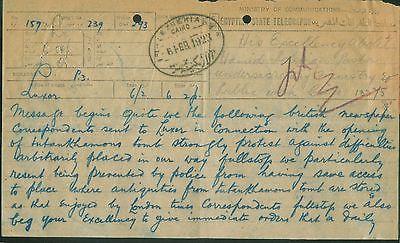 MINISTRY OF COMMUNICATIONS
EGYPTIAN STATE TELEGRAPHS
159 239 293
CAIRO
6 FEB. 1923
His Excellency
P3.
Luxor 6/2 6
Message begins Quote we the following british newspaper
Correspondents sent to Luxor in Connection with the opening
of Tutankhamons tomb strongly protest against difficulties
arbitrarily placed in our way fullstops we particularly
resent being prevented by police from having same access
to place where antiquities from Tutankhamons tomb are stored
as that enjoyed by London times Correspondents fullstop we also
beg your Excellency to give immediate orders that a daily